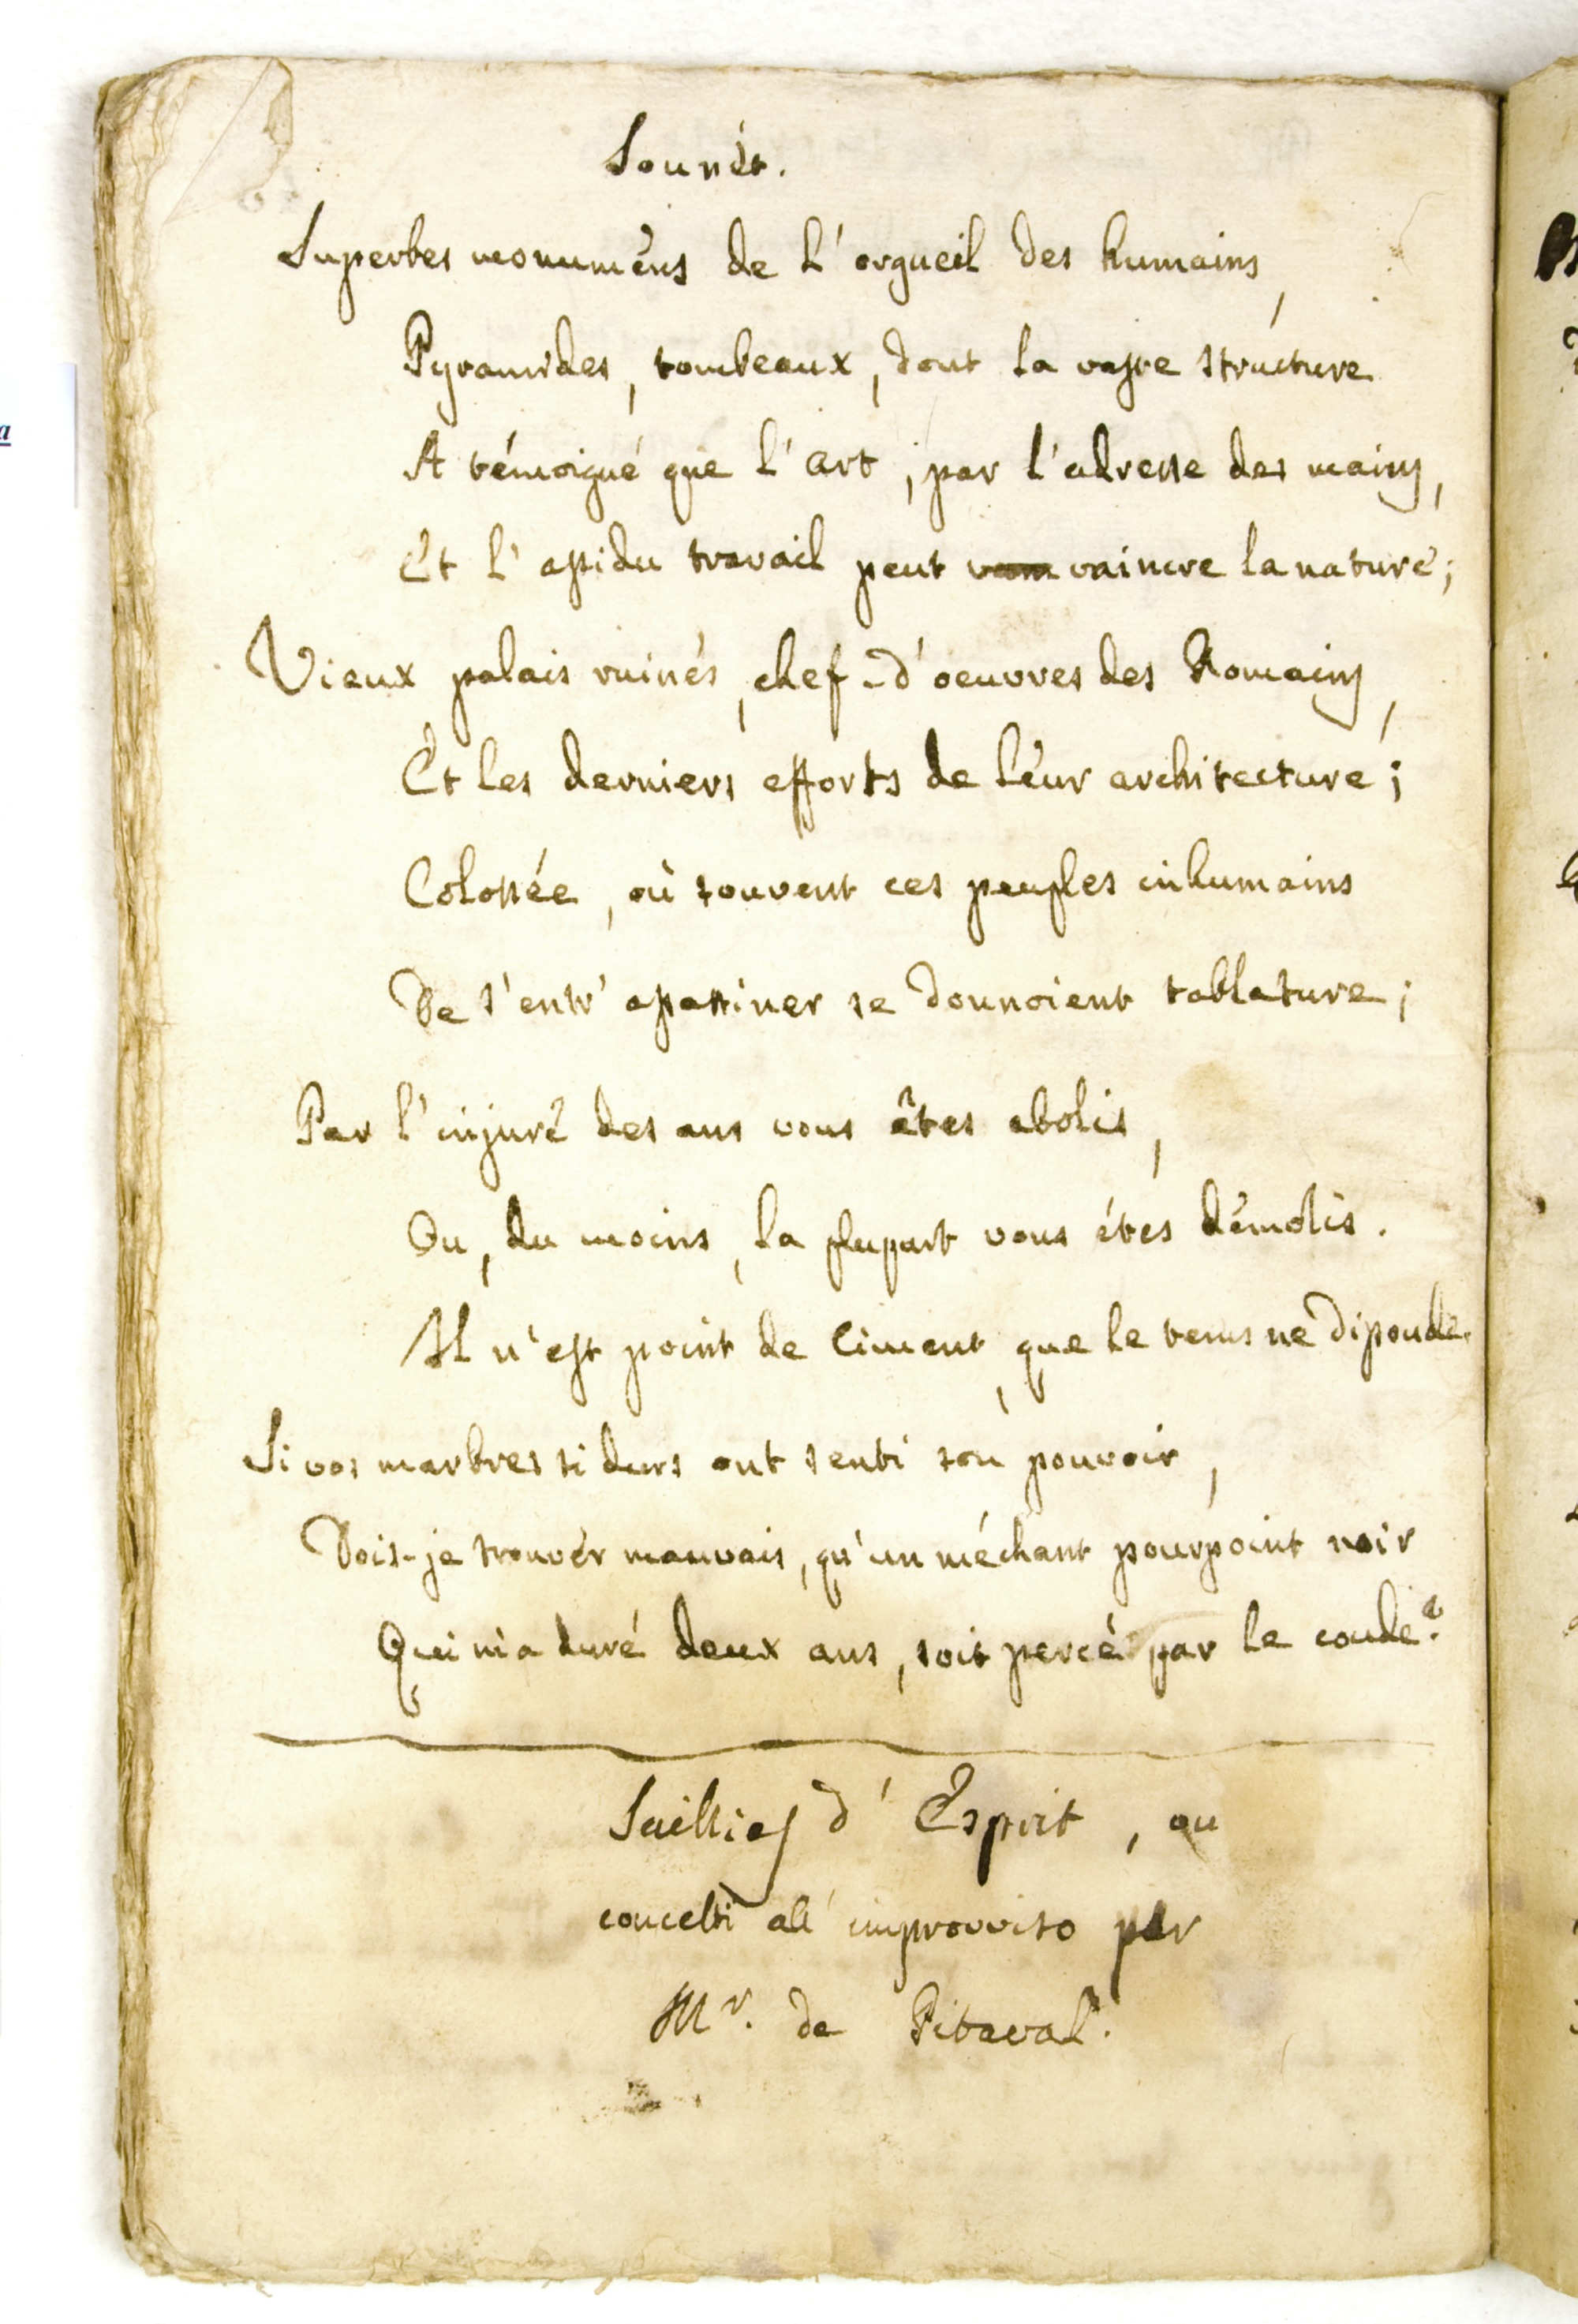 Sonnèt.
Superbes monumens de l'orgueil des humains,
Pyramides, tombeaux, dont la vaste structure
A témoigné que l'art, par l'adresse des mains,
Et l'assidu travail peut vaincre la nature;
Vieux palais ruinés, chef-d'oeuvres des Romains,
Et les derniers efforts de leur architecture;
Colossée, où souvent ces peuples inhumains
De s'entr'assassiner se donnoient tablature;
Par l'injure des ans vous êtes abolis,
Ou, du moins, la plupart vous étes démolis.
Il n'est point de ciment, que le tems ne dissoude.
Si vos marbres si durs ont senti son pouvoir,
Dois-je trouver mauvais, qu'un méchant pourpoint noir
Qui m'a duré deux ans, soit percé par le coude?
Saillies d'Esprit, ou
concetti all'improvviso per
Mr. de Pitaval.
a